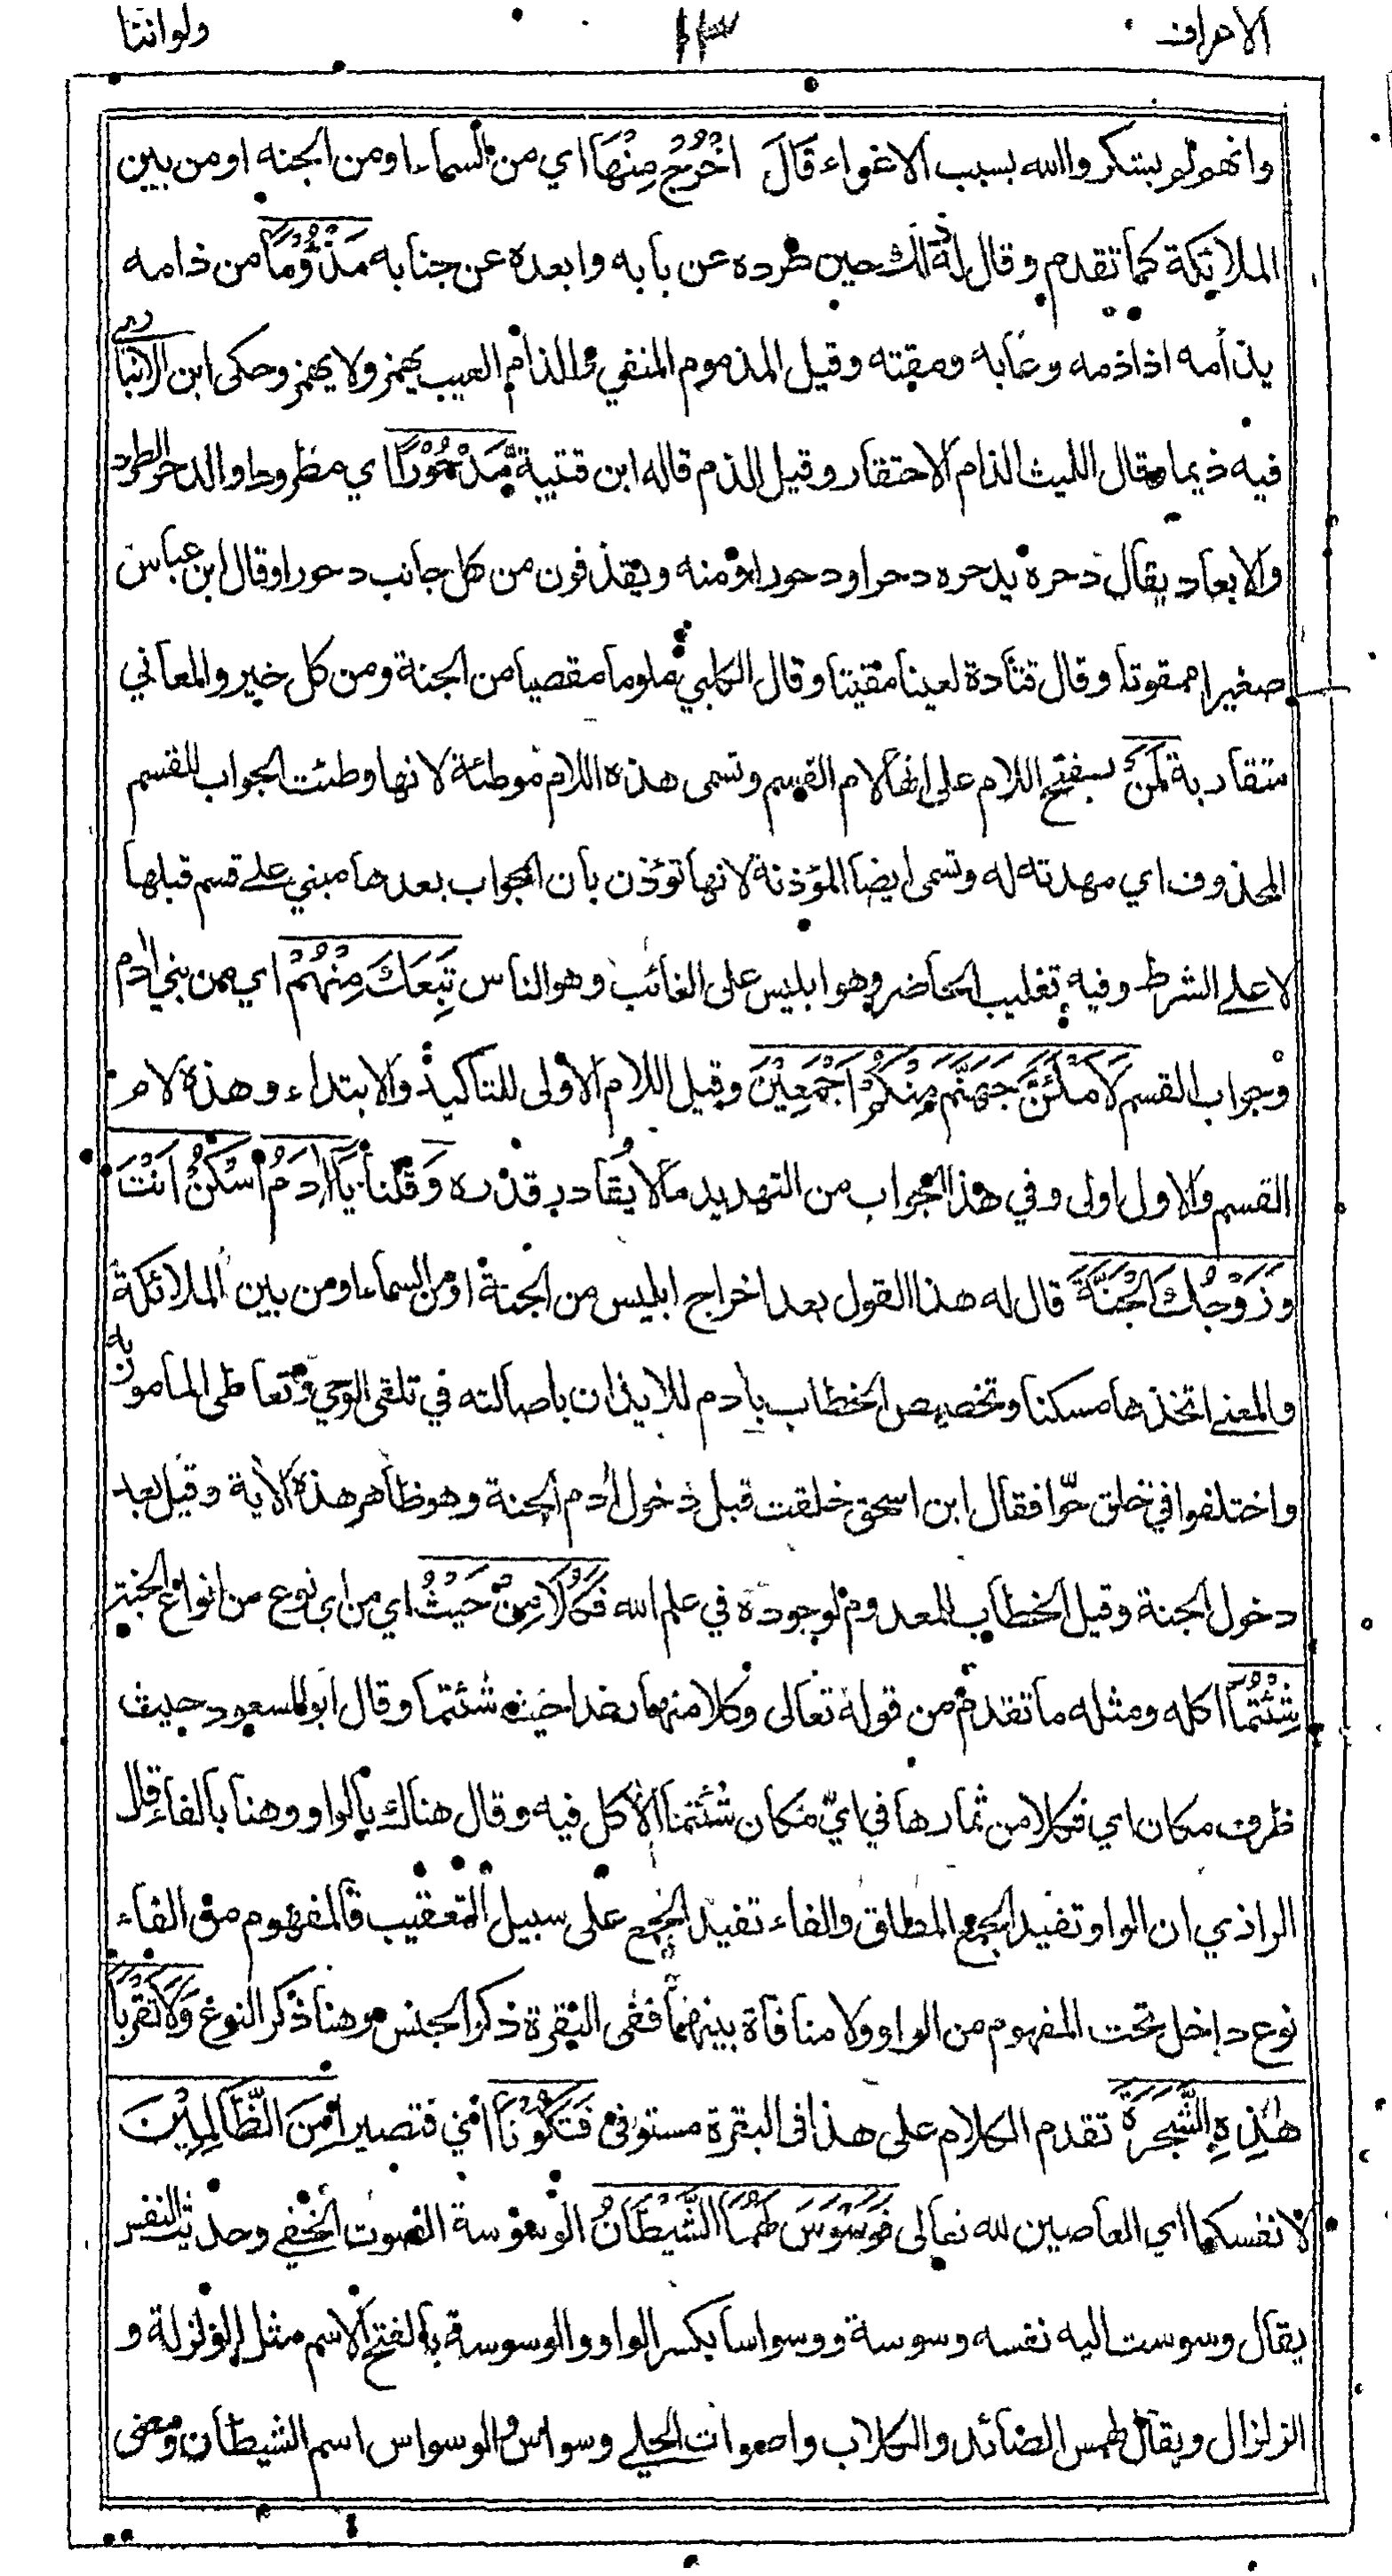 الاعراف ١٣ ولواننا
وانهم لم يشكروا الله بسبب الاغواء قَالَ اخْرُجْ مِنْهَا اي من السماء او من الجنه او من بين
الملائكة كما تقدم وقال له ذلك حين طرده عن بابه وابعده عن جنابه مَذْؤُمًا من ذامه
يذأمه اذا ذمه وعابه ومقته وقيل المذموم المنفي والذام العيب يهمز ولا يهمز وحكى ابن الانباري
فيه ذيما وقال الليث الذام الاحتقار وقيل الذم قاله ابن قتيبة مَّدْحُوْرًا اي مطرودا والدحر الطرد
والابعاد يقال دحره يدحره دحرا ودحورا ومنه ويقذفون من كل جانب دحورا وقال ابن عباس
صغيرا ممقوتا وقال قتادة لعينا مقيتا وقال الكلبي ملوما مقصيا من الجنة ومن كل خير والمعاني
متقاربة لَمَنْ بفتح اللام على انها لام القسم وتسمى هذه اللام موطئة لانها وطئت الجواب للقسم
المحذوف اي مهدته له وتسمى ايضا المؤذنة لانها تؤذن بان الجواب بعدها مبني على قسم قبلها
لا على الشرط وفيه تغليب الحاضر وهو ابليس على الغائب وهو الناس تَبِعَكَ مِنْهُمْ اي من بني اٰدم
وجواب القسم لَاَمْلَئَنَّ جَهَنَّمَ مِنْكُمْ اَجْمَعِيْنَ وقيل اللام الاولى للتاكيد والابتداء وهذه لام
القسم والاول اولى وفي هذا الجواب من التهديد ما لا يقادر قدره وَ قلنا يَآاٰدَمُ اسْكُنْ اَنْتَ
وَزَوْجُكَ الْجَنَّةَ قال له هذا القول بعد اخراج ابليس من الجنة او من السماء او من بين الملائكة
والمعنى اتخذها مسكنا وتخصيص الخطاب بادم للايذان باصالته في تلقى الوحي وتعاطى المامور به
واختلفوا في خلق حوّا فقال ابن اسحق خلقت قبل دخول اٰدم الجنة وهو ظاهر هذه الاٰية وقيل بعد
دخول الجنة وقيل الخطاب للمعدوم لوجوده في علم الله فَكُلَا مِنْ حَيْثُ اي من اي نوع من انواع الجنة
شِئْتُمَا اكله ومثله ما تقدم من قوله تعالى وكلا منها رغدا حيث شئتما وقال ابو السعود حيث
ظرف مكان اي فكلا من ثمارها في ايّ مكان شئتما الاكل فيه وقال هناك بالواو وهنا بالفاء قال
الرازي ان الواو تفيد الجمع المطلق والفاء تفيد الجمع على سبيل التعقيب فالمفهوم من الفاء
نوع داخل تحت المفهوم من الواو ولا منافاة بينهما ففى البقرة ذكر الجنس وهنا ذكر النوع وَلَا تَقْرَبَا
هٰذِهِ الشَّجَرَةَ تقدم الكلام على هذا فى البقرة مستوفى فَتَكُوْنَا اي فتصيرا مِنَ الظَّالِمِيْنَ
لانفسكما اي العاصين لله تعالى فَوَسْوَسَ لَهُمَا الشَّيْطَانُ الوسوسة الصوت الخفي وحديث النفس
يقال وسوست اليه نفسه وسوسة ووسواسا بكسر الواو والوسوسة بالفتح الاسم مثل الزلزلة و
الزلزال ويقال لهمس الصائد والكلاب واصوات الحلي وسواس والوسواس اسم الشيطان ومعنى